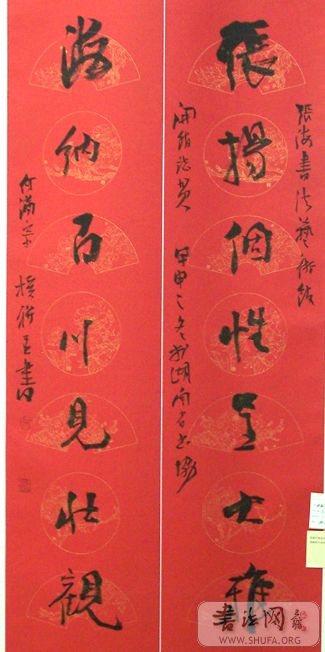 張海書法藝術館
張揚個性呈大雅
開館誌賀 甲申之冬於湖南省書協
海納百川見壯觀
何滿宗 撰聯並書
書法網
WWW.SHUFA.ORG